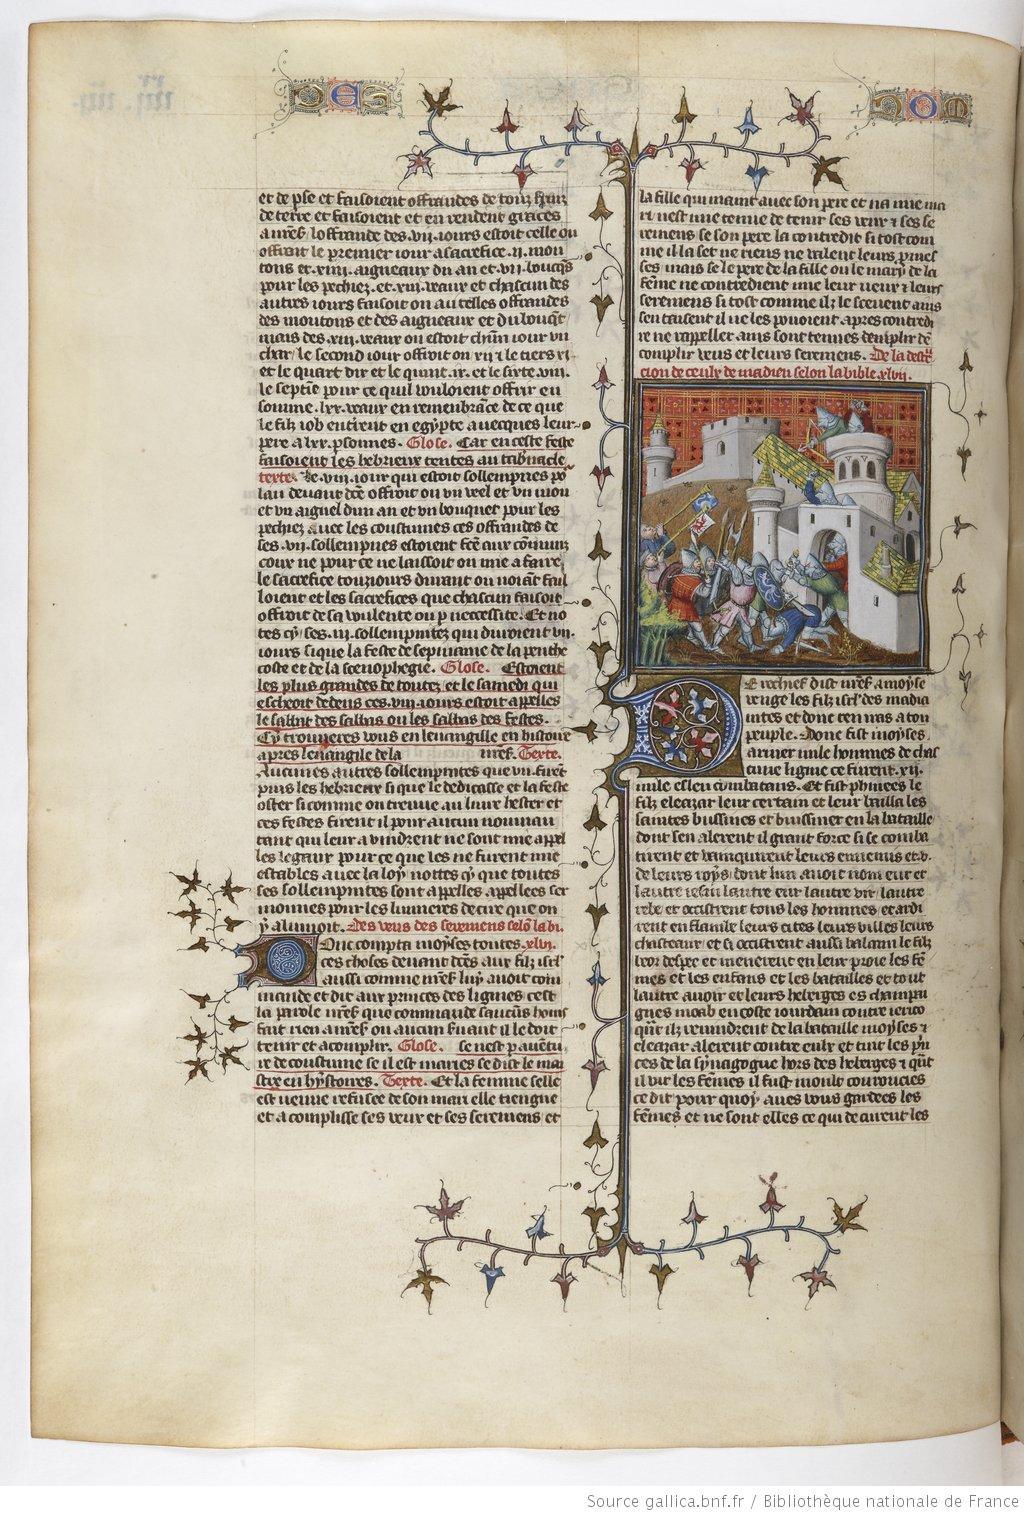 DES
NOM
et de pse et faisoient offrandes de touz fruiz
de terre et faisoient et en rendent graces
a nr̃e s̃. loffrande des .vii. iours estoit celle ou
offroit le premier iour a sacrefice .ii. mou
tons et .xiiii. aigneaux du an et .vii. boucq̃s
pour les pechiez. et .xiii. veaux et chascun des
autres iours faisoit on autelles offrandes
des moutons et des aigneaux et du boucq̃t
mais des .xiii. veaux ou estoit chũn iour vn
chãt le second iour offroit on .xii. et le tiers .xi.
et le quart dix et le quint .ix. et le sixte .viii.
le septiẽ pour ce quil vouloient offrir en
somme .lxx. veaux en remenbrãce de ce que
le filz iob entrent en egypte auecques leur
pere a lxx. psonnes. Glose. Car en ceste feste
faisoient les hebrieux tentes au tab̾nacle
texte. Le .viii. iour qui estoit sollempnies po
lau deuant dcẽ offroit on vn veel et vn mou
et vn aignel dun an et vn bouquet pour les
pechiez auec les coustumes ces offrandes de
ses .vii. sollempnies estoient fcẽs aux cõmunz
coux ne pour ce ne laissoit on mie a faire
le sacrefice touziours durant ou noiant fail
loient et les sacrefices que chascun faisoit
offroit de sa voulente ou p neccessite. Et no
tes cy ses .iii. sollempnitez qui duroient vii.
iours si que la feste de septiuame de la penthe
coste et de la scenophegie. Glose. Estoient
les plus grandes de toutez et le samedi qui
escheoit dedens ces .viii. iours estoit appelles
le sabbat des sabbas ou les sabbas des festes.
Cy trouueres vous en leuuangille en histoire
apres leuangile de la nr̃e s̃. Texte.
Aucunes autres sollempnites que vii. furẽt
puis les hebrieux si que le dedicasse et la feste
oster si comme on treuue au liure hester et
ces festes firent il pour aucun nouuau
tant qui leur a vindrent ne sont mie appel
les legaux pour ce que les ne furent mie
establies auec la loy nottes cy que toutes
ses sollempnites sont appelles appellees ser
monnes pour les lumieres de cire que on
y alumoit. Des veus des seremens selõ la bi.
Donc compta moyses toutes .xlvi.
ces choses deuant dcẽs aux filz isrl̃
aussi comme nr̃e s̃ luy auoit com
mande et dit aux princes des lignies cest
la parole nr̃e s̃ que commande saucũs homs
fait rien a nr̃e s̃ ou aucun sauant il le doit
tenir et acomplir. Glose. se nest p auẽtu
re de coustume se il est maries se dist le mai
stre en hystoires. Texte. Et la femme selle
est veuue refusee de son mari elle tiengne
et acomplisse ses veux et ses seremens et
la fille qui maint auec son pere et na mie ma
ri nest mie tenue de tenir ses veux & ses se
remens se son pere la contredit si tost com
me il la set ne riens ne valent leurs pmes
ses mais se le pere de la fille ou le mary de la
fẽme ne contredient mie leur veux & leurs
seremens si tost comme ilz le sceuent ains
sen taisent il ne les pouoient apres contredi
re ne rappeller ains sont tenues demplir de
complir veus et leurs seremens. De la destr̃u
cion de ceulx de madien selon la bible .xlvii.
Derechief dist nr̃e s̃ a moyse
venge les filz isrl̃ des madia
nites et donc ten vras a ton
peuple. Donc fist moyses
armer mile hommes de chas
cune ligne ce furent .xii.
mile esleu combatans. Et fist phinees le
filz eleazar leur certain et leur bailla les
saintes buissines et buissiner en la bataille
dont sen alerent il grant force si se comba
tirent et vainquirent leurs ennemis et .v.
de leurs roys dont lun auoit nom eur et
lautre resau lautre eur lautre vrr lautre
rebe et occistrent tous les hommes et ardi
rent en flamme leurs cites leurs villes leurs
chasteaux et si occistrent aussi balaam le filz
beor despee et menerent en leur proie les fẽ
mes et les enfans et les batailles et tout
lautre auoir et leurs heberges es champai
gnes moab encoste iourdain contre ierico
quãt ilz reuindrent de la bataille moyses &
eleazar alerent contre eulx et tuit les prĩ
ces de la synagogue hors des heberges & quãt
il vit les fẽmes il fust moult couroucies
ce dit pour quoy aues vous gardees les
fẽmes et ne sont elles ce qui deciurent les
Source gallica.bnf.fr / Bibliothèque nationale de France